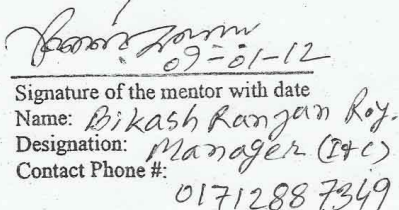 09-01-12
Signature of the mentor with date
Name: Bikash Ranjan Roy.
Designation: Manager (I&C)
Contact Phone #:
01712887349